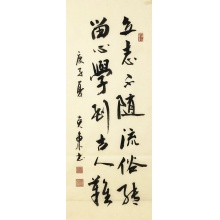 立志不随流俗转
留心學到古人難
庚子夏